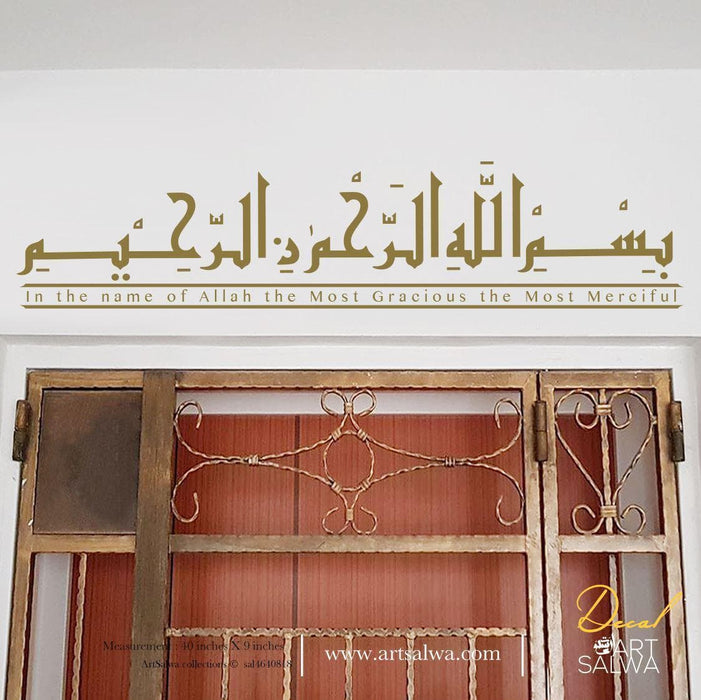 بِسْمِ اللَّهِ الرَّحْمٰنِ الرَّحِيْمِ
In the name of Allah the Most Gracious the Most Merciful
Measurement : 40 inches X 9 inches
ArtSalwa collections © sal4640818
www.artsalwa.com
Decal
ART
SALWA